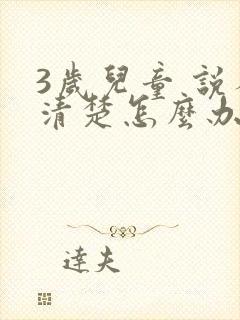 3歲兒童 說
清楚怎麼办
達夫